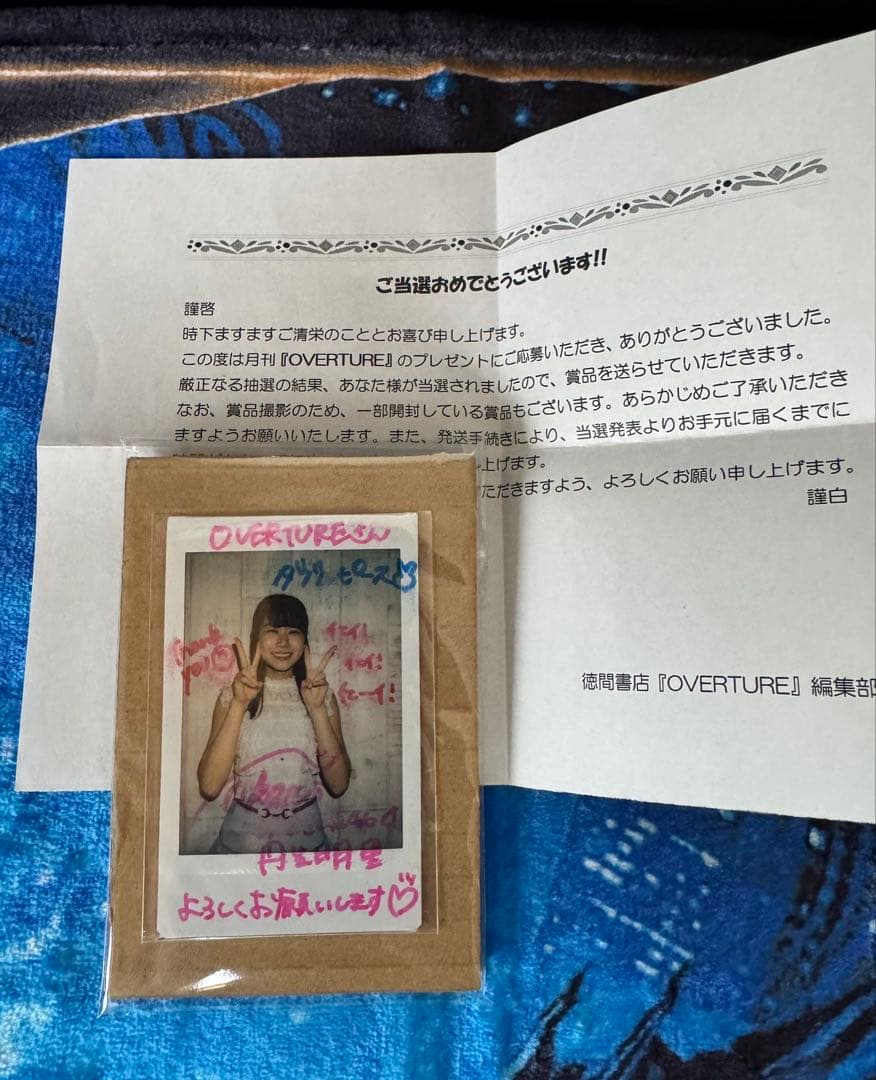 ご当選おめでとうございます!!
謹啓
時下ますますご清栄のこととお喜び申し上げます。
この度は月刊『OVERTURE』のプレゼントにご応募いただき、ありがとうございました。
厳正なる抽選の結果、あなた様が当選されましたので、賞品を送らせていただきます。
なお、賞品撮影のため、一部開封している賞品もございます。あらかじめご了承いただき
ますようお願いいたします。また、発送手続きにより、当選発表よりお手元に届くまでに
し上げます。
ただきますよう、よろしくお願い申し上げます。
謹白
徳間書店『OVERTURE』編集部
OVERTUREさん
ダブルピース
thank
you
イエイ!
イエイ!
イエーイ!
丹生明里
よろしくお願いします